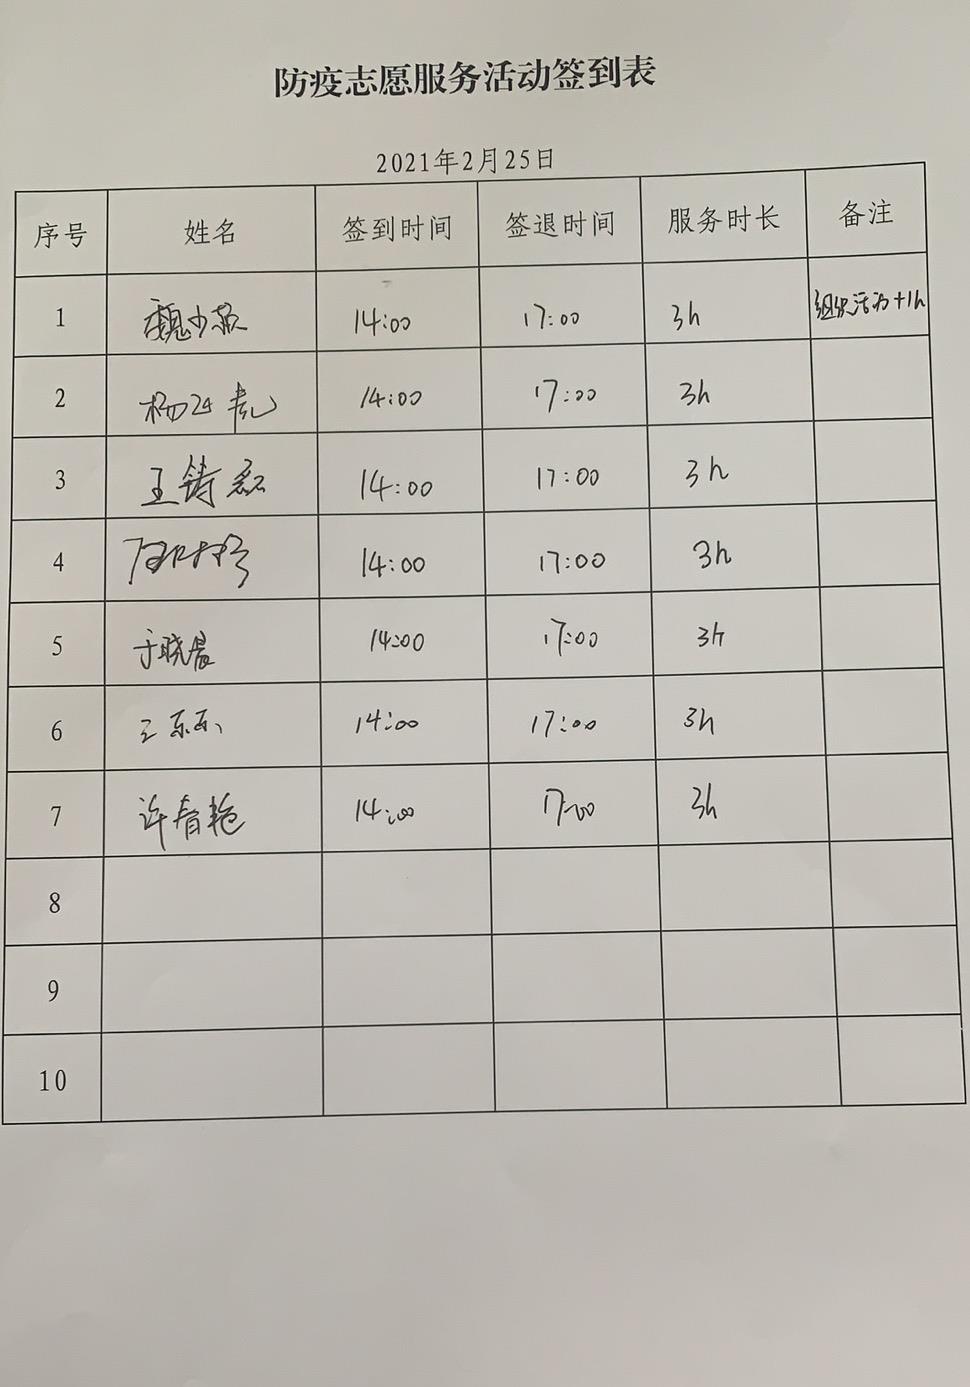 防疫志愿服务活动签到表
2021年2月25日
序号 姓名 签到时间 签退时间 服务时长 备注
1 魏少 14:00 17:00 3h 组织活动+1h
2 杨 14:00 17:00 3h
3 王铸磊 14:00 17:00 3h
4 14:00 17:00 3h
5 于晓晨 14:00 17:00 3h
6 14:00 17:00 3h
7 许春艳 14:00 17:00 3h
8
9
10